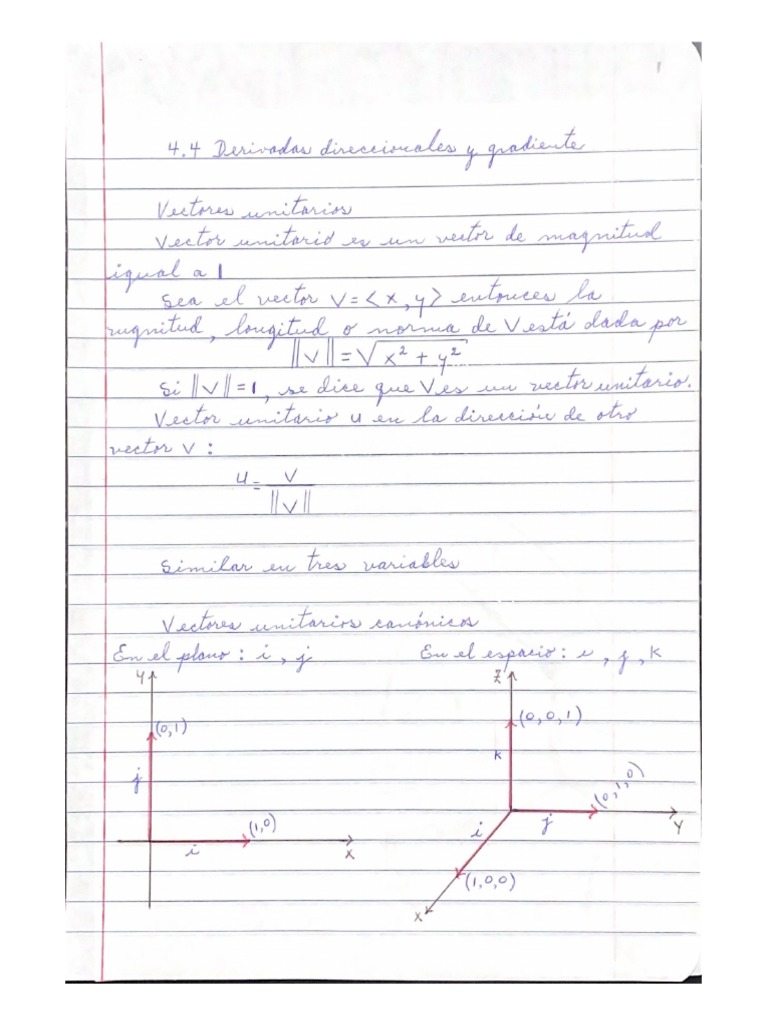 4.4 Derivadas direccionales y gradiente
Vectores unitarios
Vector unitario es un vector de magnitud
igual a 1
Sea el vector V=⟨x,y⟩ entonces la
magnitud, longitud o norma de V está dada por
||V||=√x²+y²
Si ||V||=1, se dice que V es un vector unitario.
Vector unitario u en la dirección de otro
vector V:
u=V/||V||
Similar en tres variables
Vectores unitarios canónicos
En el plano: i, j
En el espacio: i, j, k
Y
(0,1)
j
(1,0)
i
X
Z
(0,0,1)
k
(0,1,0)
j
Y
i
(1,0,0)
X